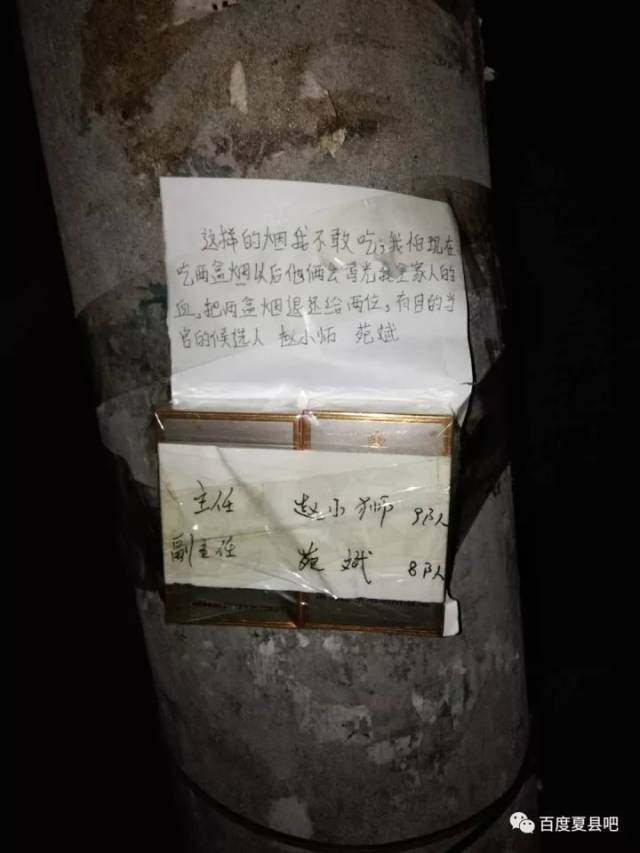 这样的烟我不敢吃，我怕现在
吃两盒烟以后他俩会喝光我全家人的
血，把两盒烟退还给两位，有目的当
官的候选人 赵小师 苑斌
主任 赵小狮 9队人
副主任 苑斌 8队人
百度夏县吧